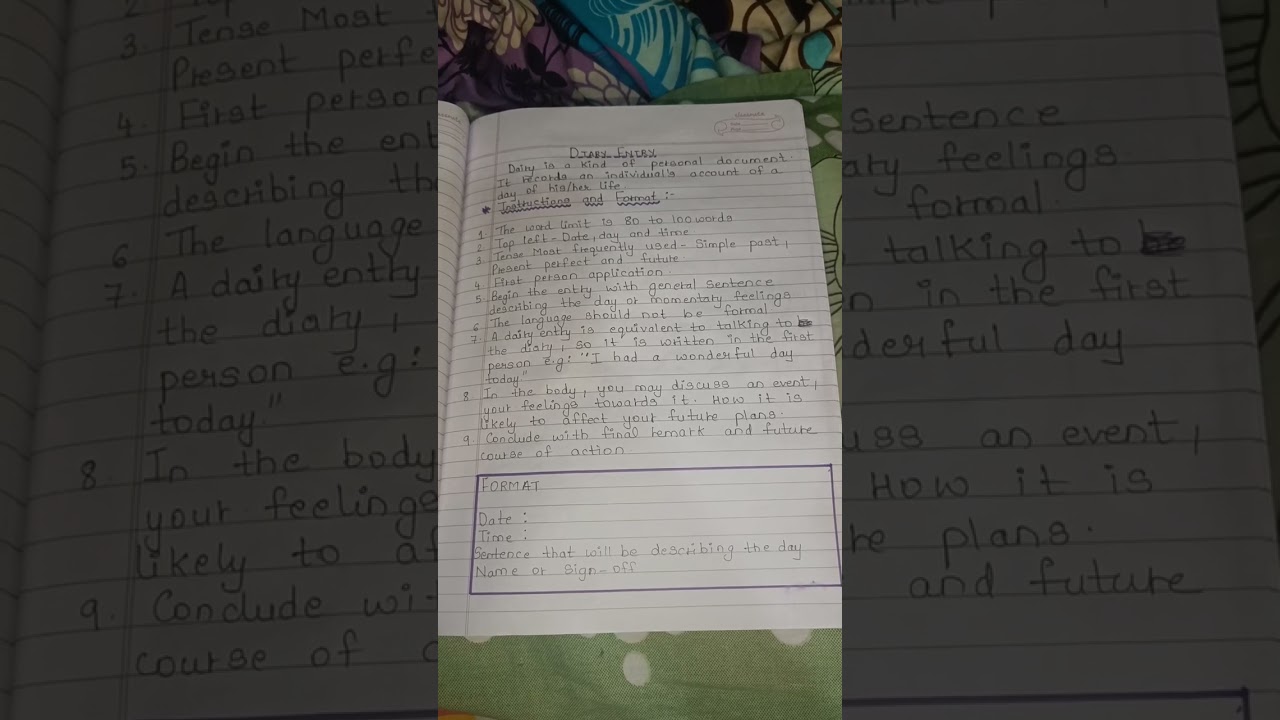 DIARY ENTRY
Dairy is a kind of personal document.
It records an individual's account of a
day of his/her life.
* Instructions and Format :-
1 The word limit is 80 to 100 words
2 Top left - Date, day and time
3 Tense Most frequently used - Simple past,
Present perfect and future.
4 First person application.
5 Begin the entry with general sentence
describing the day or momentary feelings
6 The language should not be formal
7. A dairy entry is equivalent to talking to
the diary, so it is written in the first
person e.g: "I had a wonderful day
today"
8 In the body, you may discuss an event,
your feelings towards it. How it is
likely to affect your future plans.
9. Conclude with final remark and future
course of action.
FORMAT
Date :
Time :
Sentence that will be describing the day
Name or Sign-off